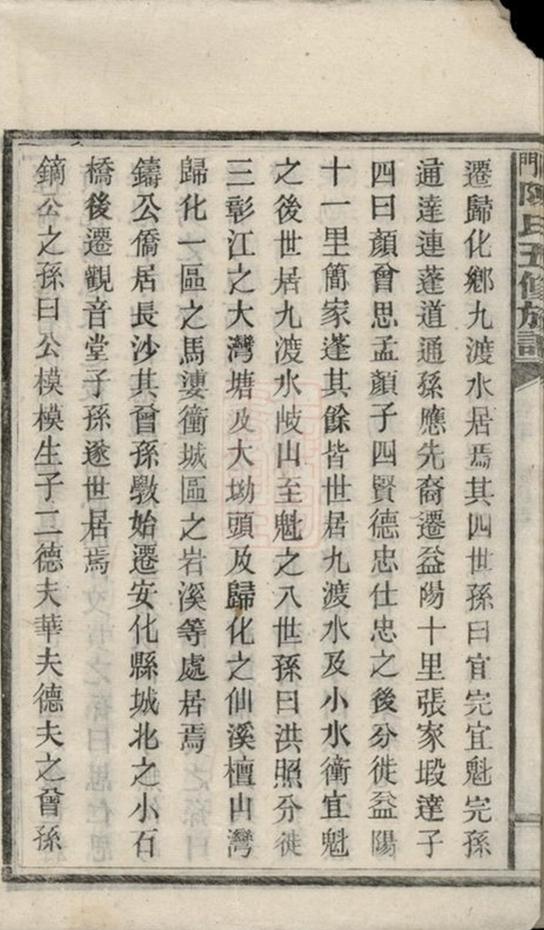 門陳氏五修族譜
遷歸化鄉九渡水居焉其四世孫曰宜完宜魁完孫
通達連蓬道通孫應先裔遷益陽十里張家塅達子
四曰顏曾思孟顏子四賢德忠仕忠之後分徙益陽
十一里簡家蓬其餘皆世居九渡水及小水衝宜魁
之後世居九渡水歧山至魁之八世孫曰洪照分徙
三彰江之大灣塘及大坳頭及歸化之仙溪檀山灣
歸化一區之馬漊衝城區之岩溪等處居焉
鑄公僑居長沙其曾孫斆始遷安化縣城北之小石
橋後遷觀音堂子孫遂世居焉
鏑公之孫曰公模模生子二德夫華夫德夫之曾孫